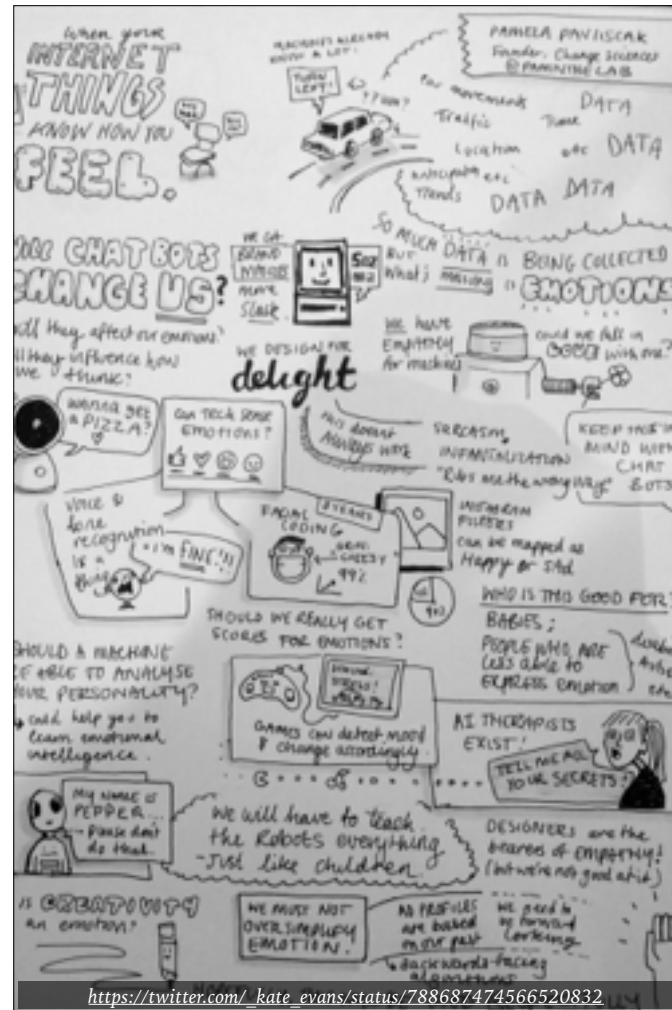 When your
INTERNET
THINGS
KNOW HOW YOU
FEEL.
MACHINES ALREADY
KNOW A LOT!
TURN
LEFT!
PAMELA PAVLISCAK
Founder: Change Sciences
@PAMINTHELAB
movements
Traffic
Time
DATA
Location
etc
DATA
Anticipate etc
Trends
DATA
DATA
SO MUCH DATA IS BEING COLLECTED
BUT
What's missing is
EMOTIONS
WILL CHATBOTS
CHANGE US?
will they affect our emotions?
they influence how
we think?
BRAND
more
Slack
WE DESIGN FOR
delight
WE have
EMPATHY
for machines
could we fall in
with one?
Wanna get
a PIZZA?
Can TECH SENSE
EMOTIONS?
This doesn't
Always work
SARCASM,
INFANTILISATION
KEEP THIS IN
MIND WITH
CHAT
BOTS
voice &
tone
recognition
is a
thing
I'm FINE!!
FACIAL
CODING
99%
INSTAGRAM
FILTERS
can be mapped as
Happy or SAd
WHO IS THIS GOOD FOR?
BABIES;
PEOPLE WHO ARE
less able to
EXPRESS emotion
SHOULD WE REALLY GET
SCORES FOR EMOTIONS?
SHOULD A MACHINE
BE ABLE TO ANALYSE
YOUR PERSONALITY?
could help you to
learn emotional
intelligence.
GAMES can detect mood
& change accordingly.
AI THERAPISTS
EXIST!
TELL ME ALL
YOUR SECRETS!
MY NAME IS
PEPPER...
please don't
do that.
We will have to teach
the Robots everything
-Just like children.
DESIGNERS are the
bearers of EMPATHY!
(but we're not good at it)
IS CREATIVITY
an emotion?
WE MUST NOT
OVERSIMPLIFY
EMOTION.
PROFILES
are based
on our past
backwards-facing
algorithms
We need to
be forward
looking
https://twitter.com/_kate_evans/status/788687474566520832